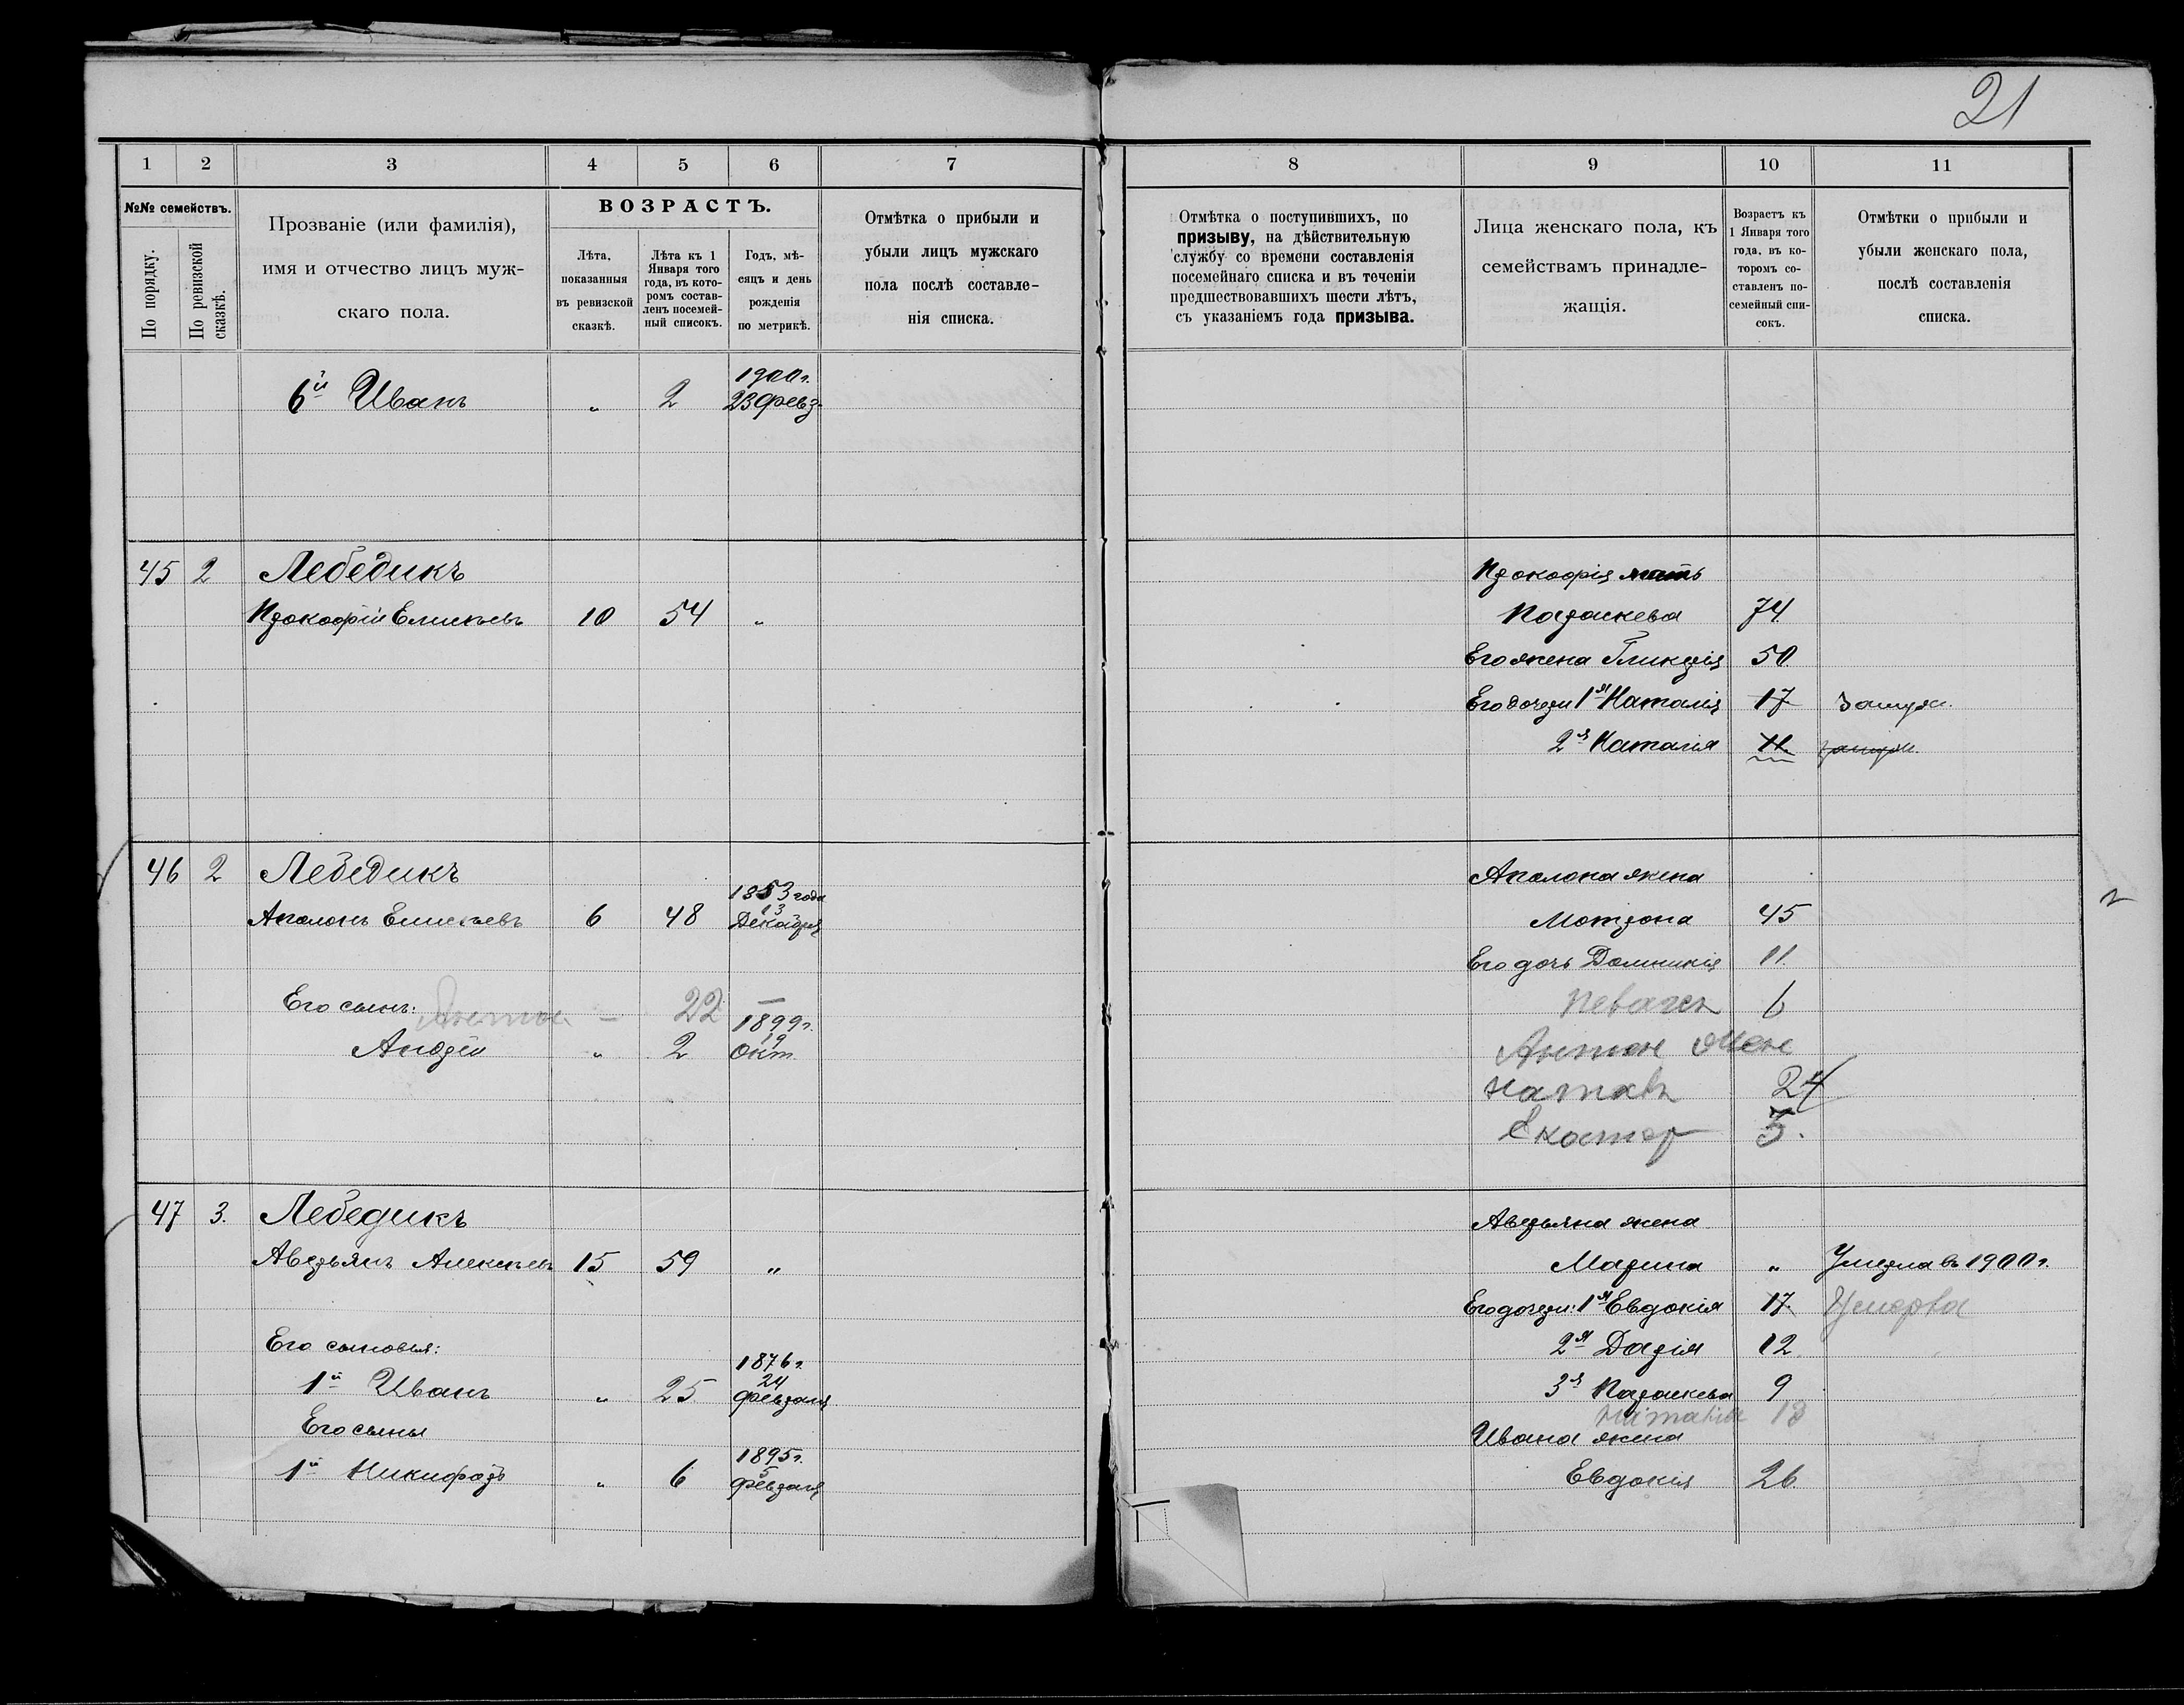 21
1 2 3 4 5 6 7 8 9 10 11
№№ семействъ.
По порядку.
По ревизской сказкѣ.
Прозваніе (или фамилія),
имя и отчество лицъ муж-
скаго пола.
ВОЗРАСТЪ.
Лѣта,
показанныя
въ ревизской
сказкѣ.
Лѣта къ 1
Января того
года, въ кото-
ромъ состав-
ленъ посемей-
ный списокъ.
Годъ, мѣ-
сяцъ и день
рожденія
по метрикѣ.
Отмѣтка о прибыли и
убыли лицъ мужскаго
пола послѣ составле-
нія списка.
Отмѣтка о поступившихъ, по
призыву, на дѣйствительную
службу со времени составленія
посемейнаго списка и въ теченіи
предшествовавшихъ шести лѣтъ,
съ указаніемъ года призыва.
Лица женскаго пола, къ
семействамъ принадле-
жащія.
Возрастъ къ
1 Января того
года, въ ко-
торомъ со-
ставленъ по-
семейный спи-
сокъ.
Отмѣтки о прибыли и
убыли женскаго пола,
послѣ составленія
списка.
1900г.
6й Иванъ " 2 23 Февр.
45 2 Лебедикъ
Прокофій Елисѣевъ 10 54 "
Прокофія мать
Параскева 74.
Его жена Гликерія 50
Его дочери 1я Наталія 17 замуж.
2я Наталія 11. замуж.
46 2 Лебедикъ
1853 года
13
Аполонъ Елисѣевъ 6 48 Декабря
Его сынъ: Антон – 22 –
1899г.
19
Андрей " 2 Окт.
Аполона жена
Мотрона 45
Его дочь Домникія 11.
6
Антон жен
24
Екатер 5.
47 3. Лебедикъ
Аверьянъ Алексѣевъ 15 59 "
Его сыновья:
1876г.
24
1й Иванъ " 25 Февраля
Его сыны
1895г.
5
1й Никифоръ " 6 Февраля
Аверьяна жена
Марина " Умерла въ 1900г.
Его дочери: 1я Евдокія 17. Умерла
2я Дарія 12
3я Параскева 9
13
Ивана жена
Евдокія 26.